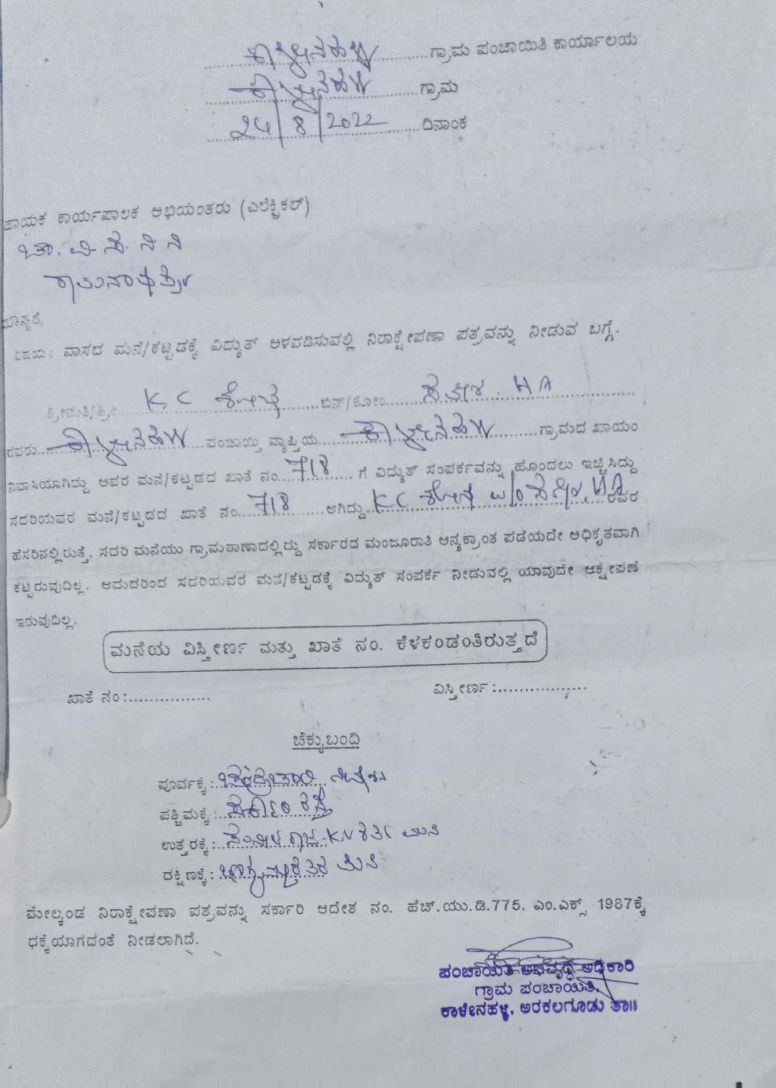 ಕಾಳೇನಹಳ್ಳಿ ಗ್ರಾಮ ಪಂಚಾಯಿತಿ ಕಾರ್ಯಾಲಯ
ಕಾಳೇನಹಳ್ಳಿ ಗ್ರಾಮ
24/8/2022 ದಿನಾಂಕ
ಹಾಯಕ ಕಾರ್ಯಪಾಲಕ ಅಭಿಯಂತರು (ಎಲೆಕ್ಟ್ರಿಕಲ್)
ಚಾ. ವಿ. ಸ. ನಿ. ನಿ
ರಾಮನಾಥಪುರ
ಮಾನ್ಯರೆ,
ವಿಷಯ: ವಾಸದ ಮನೆ/ಕಟ್ಟಡಕ್ಕೆ ವಿದ್ಯುತ್ ಅಳವಡಿಸುವಲ್ಲಿ ನಿರಾಕ್ಷೇಪಣಾ ಪತ್ರವನ್ನು ನೀಡುವ ಬಗ್ಗೆ.
ಶ್ರೀಮತಿ/ಶ್ರೀ K.C ಬಿನ್/ಕೋಂ HA
ರವರು ಕಾಳೇನಹಳ್ಳಿ ಪಂಚಾಯ್ತಿ ವ್ಯಾಪ್ತಿಯ ಕಾಳೇನಹಳ್ಳಿ ಗ್ರಾಮದ ಖಾಯಂ
ನಿವಾಸಿಯಾಗಿದ್ದು ಅವರ ಮನೆ/ಕಟ್ಟಡದ ಖಾತೆ ನಂ. 718 ಗೆ ವಿದ್ಯುತ್ ಸಂಪರ್ಕವನ್ನು ಹೊಂದಲು ಇಚ್ಛಿಸಿದ್ದು
ಸದರಿಯವರ ಮನೆ/ಕಟ್ಟಡದ ಖಾತೆ ನಂ. 718 ಆಗಿದ್ದು KC HA ರವರ
ಹೆಸರಿನಲ್ಲಿರುತ್ತೆ. ಸದರಿ ಮನೆಯು ಗ್ರಾಮಠಾಣಾದಲ್ಲಿದ್ದು ಸರ್ಕಾರದ ಮಂಜೂರಾತಿ ಆನ್ಯಕ್ರಾಂತ ಪಡೆಯದೇ ಅಧಿಕೃತವಾಗಿ
ಕಟ್ಟಿರುವುದಿಲ್ಲ. ಆದುದರಿಂದ ಸದರಿಯವರ ಮನೆ/ಕಟ್ಟಡಕ್ಕೆ ವಿದ್ಯುತ್ ಸಂಪರ್ಕ ನೀಡುವಲ್ಲಿ ಯಾವುದೇ ಆಕ್ಷೇಪಣೆ
ಇರುವುದಿಲ್ಲ.
ಮನೆಯ ವಿಸ್ತೀರ್ಣ ಮತ್ತು ಖಾತೆ ನಂ. ಕೆಳಕಂಡಂತಿರುತ್ತದೆ
ಖಾತೆ ನಂ:................ ವಿಸ್ತೀರ್ಣ:................
ಚೆಕ್ಕುಬಂದಿ
ಪೂರ್ವಕ್ಕೆ:
ಪಶ್ಚಿಮಕ್ಕೆ: ರಸ್ತೆ
ಉತ್ತರಕ್ಕೆ: ಮನೆ
ದಕ್ಷಿಣಕ್ಕೆ: ಮನೆ
ಮೇಲ್ಕಂಡ ನಿರಾಕ್ಷೇಪಣಾ ಪತ್ರವನ್ನು ಸರ್ಕಾರಿ ಆದೇಶ ನಂ. ಹೆಚ್.ಯು.ಡಿ.775. ಎಂ.ಎಕ್ಸ್. 1987ಕ್ಕೆ
ಧಕ್ಕೆಯಾಗದಂತೆ ನೀಡಲಾಗಿದೆ.
ಪಂಚಾಯಿತಿ ಅಭಿವೃದ್ಧಿ ಅಧಿಕಾರಿ
ಗ್ರಾಮ ಪಂಚಾಯಿತಿ,
ಕಾಳೇನಹಳ್ಳಿ, ಅರಕಲಗೂಡು ತಾ॥